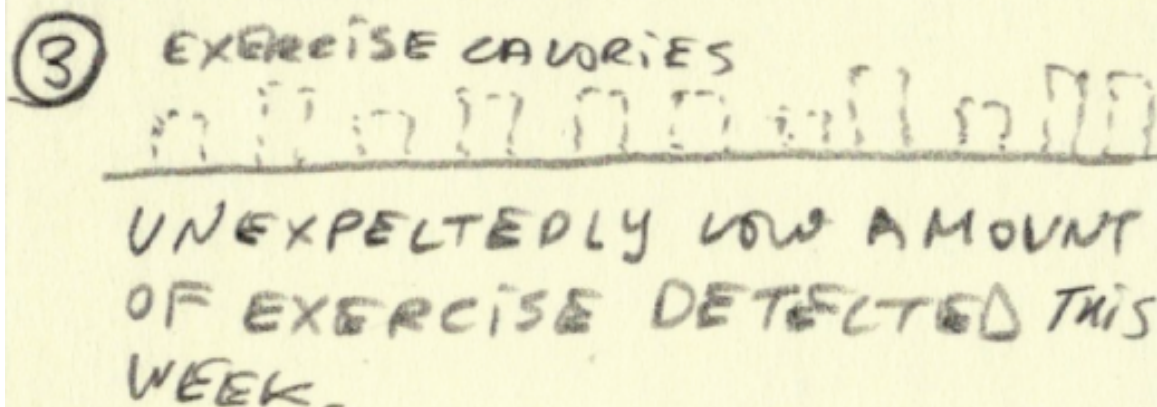 3 EXERCISE CALORIES
UNEXPECTEDLY LOW AMOUNT
OF EXERCISE DETECTED THIS
WEEK.